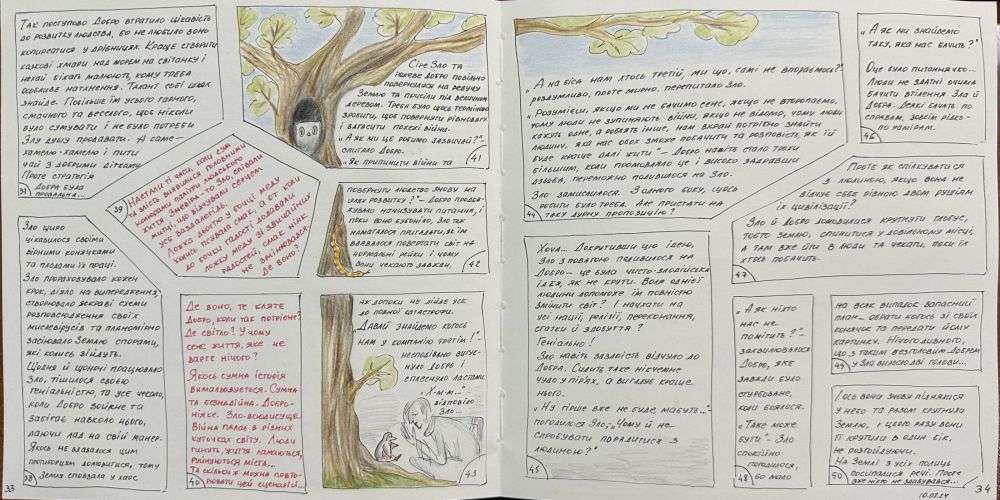 Так поступово Добро втратило цікавість
до розвитку людства, бо не любило воно
копирсатися у дрібницях. Краще створити
казкові хмари над морем на світанку і
нехай біжать малюють, кому треба
особливе натхнення. Талант собі шлях
знайде. Побільше їм усього гарного,
смачного та веселого, щоб ніколи
було сумувати і не було потреби
Злу душу продавати. А саме
хамелю-хамелю і пити
чай з добрими дітками.
Проте стратегія
Добра була
провальна...
31
Зло щиро
цікавилося своїми
вірними конячками
та плодами їх праці.
Зло прораховувало кожен
крок, діяло на випередження,
створювало яскраві схеми
розповсюдження своїх
мислевірусів та планомірно
засіювало Землю спорами,
які колись зійдуть.
Щодня й щоночі працювало
Зло, тішилося своєю
геніальністю, та усе чекало,
коли Добро зойкне та
забігає навколо нього,
лаючи лад на свій манер.
Якось не вдавалося цим
протиріччям домовитися, тому
Земля сповзала у хаос
38
33
Настали ті часи, коли сум
та злість виявилися головними
компасами палітри людського
Зневіри та Зло, співали
митці, що відчувають серцем
усе взагалі.
Ложка дьогтю у бочці меду
колись псувала смак, а от коли
до бочки гадості додавали
ложку меду зі звичайних
радостей, смак ніяк
не змінювався.
Де воно?
39
Де воно, те кляте
Добро, коли так потрібне?
Де світло? У чому
сенс життя, яке не
варте нічого?
Якось сумна історія
вимальовується. Сумна
та безнадійна. Добро-
ніяке. Зло-всюдисуще.
Війна палає в різних
куточках світу. Люди
гинуть, життя ламаються,
руйнуються міста...
Та скільки ж можна повто-
рювати цей сценарій...
40
Сіре Зло та
рожеве Добро повільно
повернулися на ревучу
Землю та присіли під величним
деревом. Треба було щось терміново
зробити, щоб повернути рівновагу
і загасити пожежі війни.
"А як ми це робимо зазвичай?"-
спитало Добро.
"Як припинити війни та
41
повернути людство знову на
шлях розвитку?"- Добро продов-
жувало нанизувати питання, і
поки воно кудкоміло, Зло теж
намагалося пригадати, як їм
вдавалося повертати світ на
нормальні рейки і чому
вони чекають завжди,
42
як допоки не дійде усе
до повної катастрофи.
"Давай знайдемо когось
нам у компанію третім!"-
несподівано вигук-
нуло Добро і
сплеснуло ластами.
"Х-м-м..."
відповіло
Зло...
43
"А на біса нам хтось третій, ми що, самі не впораємось?"-
роздумливо, проте мирно, перепитало Зло.
"Розумієш, якщо ми не бачимо сенс, якщо не второпаємо,
чому люди не зупиняють війни, якщо не відомо, чому люди
кажуть одне, а роблять інше, нам вкрай потрібно знайти
людину, яка нас обох зможе побачити та розповість, як їй
буде краще далі жити"- Добро навіть стало трохи
більшим, коли промовляло це і високо задравши
дзьоба, переможно подивилося на Зло.
Зло замислилося. З одного боку, щось
робити було треба. Але пристати на
таку дурну пропозицію?
44
Хоча... Докрутивши цю ідею,
Зло з повагою подивилося на
Добро - це була чисто-злодійська
ідея, як не крути. Воля однієї
людини допоможе їм повністю
змінити світ? І начхати на
усі нації, релігії, переконання,
статки й здобуття?
Геніально!
Зло навіть заздрість відчуло до
Добра. Сидить таке нікчемне
чудо у пір'ях, а виглядає краще
нього.
"Ну гірше вже не буде, мабуть..."-
погодилося Зло, "Чому й не
спробувати порадитися з
людиною?"
45
"А як ми знайдемо
таку, яка нас бачить?"
Оце було питаннячко...
Люди не здатні очима
бачити втілення Зла й
Добра. Деякі бачать по
справам, зовсім рідко-
по намірам.
46
Проте як спілкуватися
з людиною, якщо вона не
відчує себе рівною двом рушіям
їх цивілізації?
Зло й Добро домовилися крутнути глобус,
тобто Землю, спинитися у довільному місці,
а там вже йти в люди та чекати, поки їх
хтось побачить.
47
"А як ніхто
нас не
помітить?"-
захвилювалося
Добро, яке
завжди було
стурбоване,
коли боялося.
"Таке може
бути"- Зло
спокійно
погодилося,
бо мало
48
на всяк випадок запасний
план - обрати когось зі своїх
конячок та передати йому
картинку. Нічого дивного,
що з таким безголовим Добром
у Зла виросло дві голови...
49
І ось вони знову піднялися
у небо та разом крутнули
Землю, і цього разу вони
її крутили в один бік,
не розгойдуючи.
На Землі з усіх полиць
посипалися речі. Проте
вже ніхто не здивувався...
50
10.07.24
34